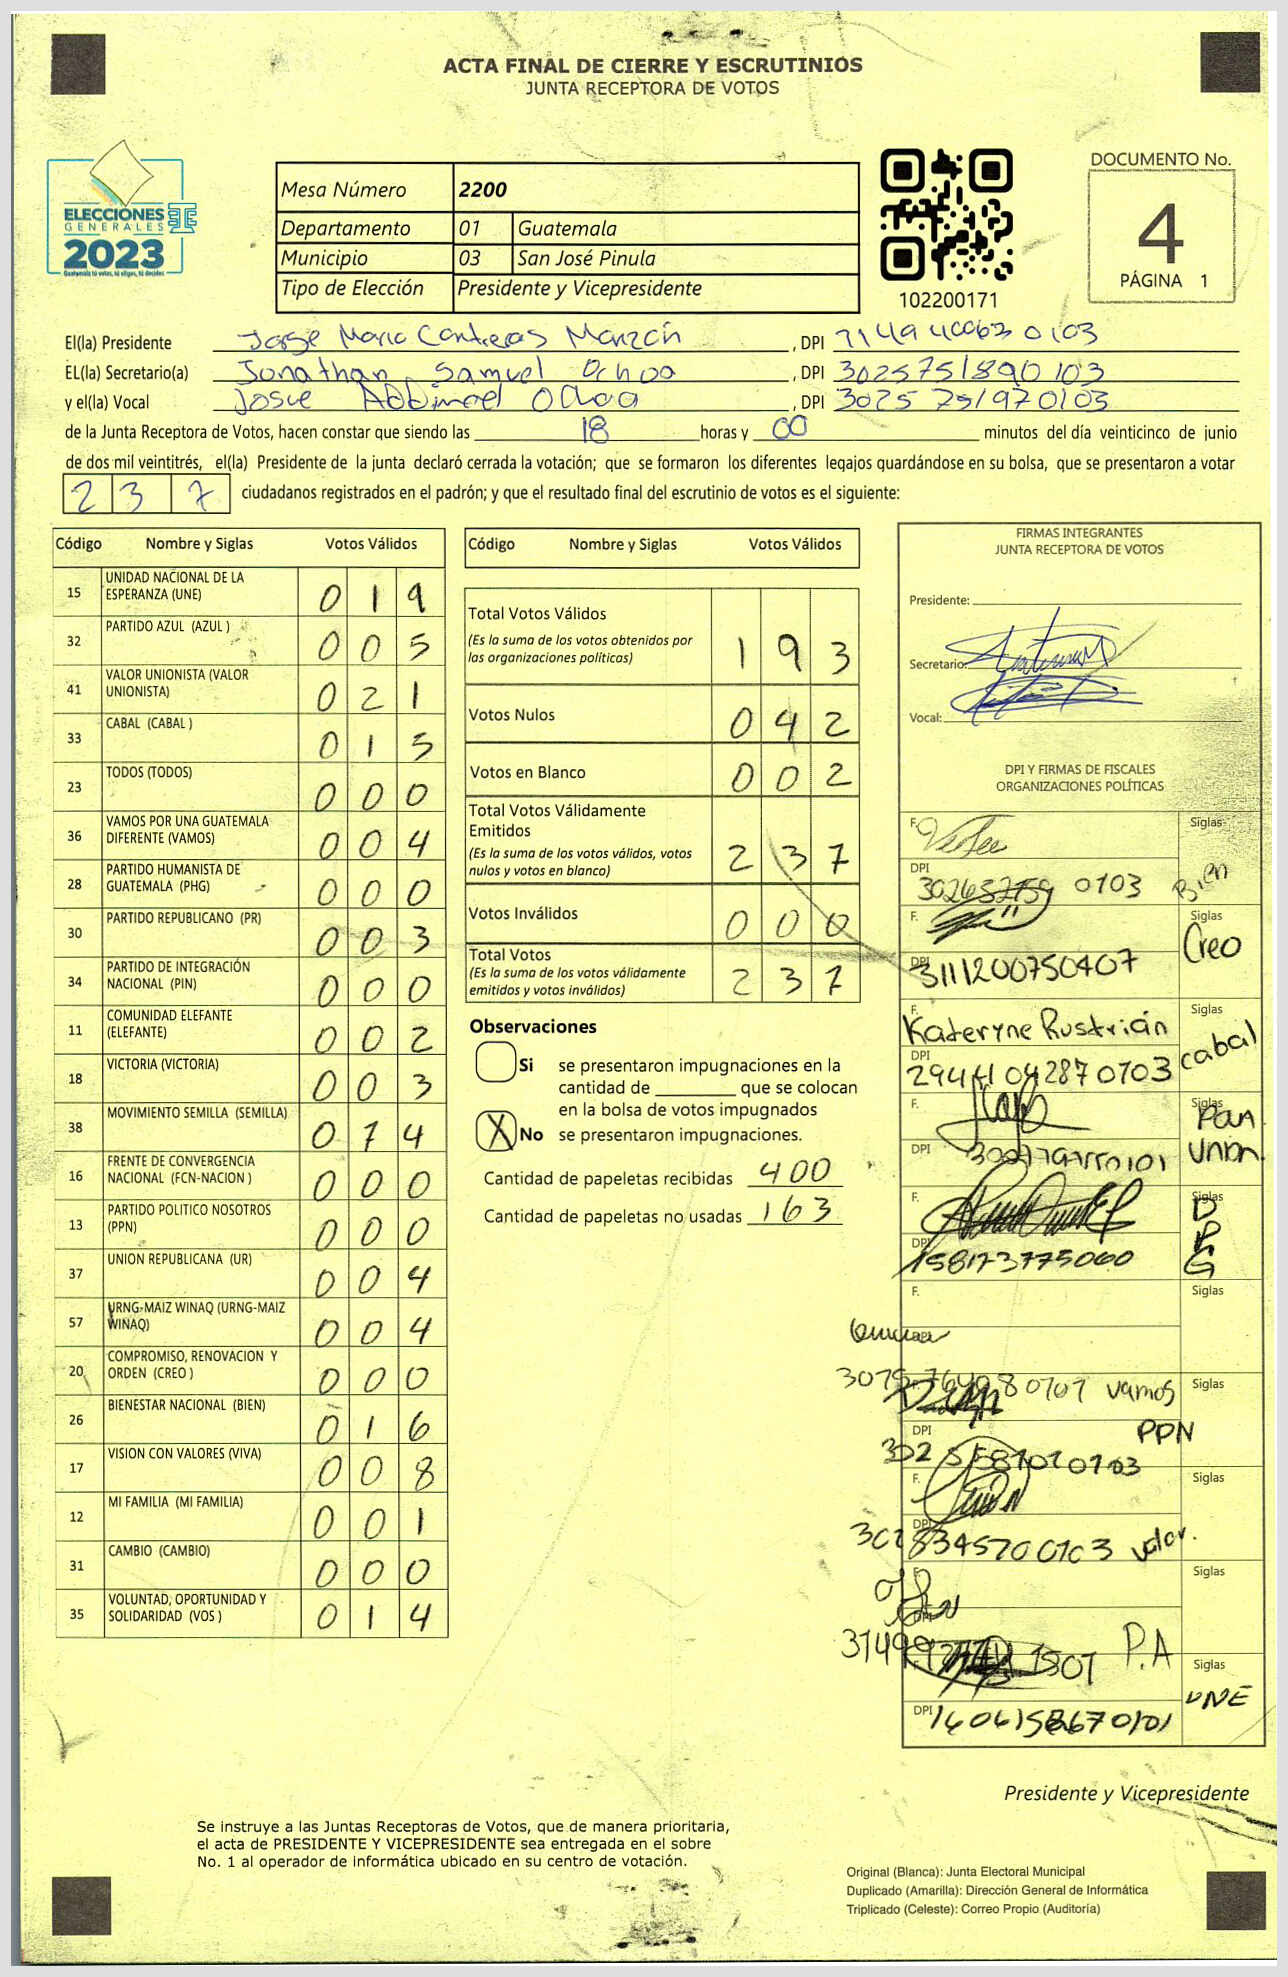 ACTA FINAL DE CIERRE Y ESCRUTINIOS
JUNTA RECEPTORA DE VOTOS
ELECCIONES
GENERALES
2023
Guatemala tú votas, tú eliges, tú decides
Mesa Número 2200
Departamento 01 Guatemala
Municipio 03 San José Pinula
Tipo de Elección Presidente y Vicepresidente
102200171
DOCUMENTO No.
4
PÁGINA 1
El(la) Presidente Jorge Mario Contreras Monzón , DPI
EL(la) Secretario(a) Jonathan Samuel Ochoa , DPI 3025751890103
y el(la) Vocal Josue Abdimael Ochoa , DPI 3025751970103
de la Junta Receptora de Votos, hacen constar que siendo las 18 horas y 00 minutos del día veinticinco de junio
de dos mil veintitrés, el(la) Presidente de la junta declaró cerrada la votación; que se formaron los diferentes legajos guardándose en su bolsa, que se presentaron a votar
237 ciudadanos registrados en el padrón; y que el resultado final del escrutinio de votos es el siguiente:
Código Nombre y Siglas Votos Válidos
15 UNIDAD NACIONAL DE LA ESPERANZA (UNE) 0 1 9
32 PARTIDO AZUL (AZUL ) 0 0 5
41 VALOR UNIONISTA (VALOR UNIONISTA) 0 2 1
33 CABAL (CABAL ) 0 1 5
23 TODOS (TODOS) 0 0 0
36 VAMOS POR UNA GUATEMALA DIFERENTE (VAMOS) 0 0 4
28 PARTIDO HUMANISTA DE GUATEMALA (PHG) 0 0 0
30 PARTIDO REPUBLICANO (PR) 0 0 3
34 PARTIDO DE INTEGRACIÓN NACIONAL (PIN) 0 0 0
11 COMUNIDAD ELEFANTE (ELEFANTE) 0 0 2
18 VICTORIA (VICTORIA) 0 0 3
38 MOVIMIENTO SEMILLA (SEMILLA) 0 7 4
16 FRENTE DE CONVERGENCIA NACIONAL (FCN-NACION ) 0 0 0
13 PARTIDO POLITICO NOSOTROS (PPN) 0 0 0
37 UNION REPUBLICANA (UR) 0 0 4
57 URNG-MAIZ WINAQ (URNG-MAIZ WINAQ) 0 0 4
20 COMPROMISO, RENOVACION Y ORDEN (CREO ) 0 0 0
26 BIENESTAR NACIONAL (BIEN) 0 1 6
17 VISION CON VALORES (VIVA) 0 0 8
12 MI FAMILIA (MI FAMILIA) 0 0 1
31 CAMBIO (CAMBIO) 0 0 0
35 VOLUNTAD, OPORTUNIDAD Y SOLIDARIDAD (VOS ) 0 1 4
Código Nombre y Siglas Votos Válidos
Total Votos Válidos 1 9 3
(Es la suma de los votos obtenidos por
las organizaciones politicas)
Votos Nulos 0 4 2
Votos en Blanco 0 0 2
Total Votos Válidamente
Emitidos
(Es la suma de los votos válidos, votos
nulos y votos en blanco) 2 3 7
Votos Inválidos 0 0 0
Total Votos
(Es la suma de los votos válidamente
emitidos y votos inválidos) 2 3 7
Observaciones
Si se presentaron impugnaciones en la
cantidad de ________ que se colocan
en la bolsa de votos impugnados
X No se presentaron impugnaciones.
Cantidad de papeletas recibidas 400
Cantidad de papeletas no usadas 163
FIRMAS INTEGRANTES
JUNTA RECEPTORA DE VOTOS
Presidente:
Secretario:
Vocal:
DPI Y FIRMAS DE FISCALES
ORGANIZACIONES POLÍTICAS
F. Siglas
DPI 0103 Bien
F. Siglas Creo
DPI 3111200750407
F. Kateryne Rustrián Siglas
DPI 2944104287 0103 cabal
F. Siglas Pan
DPI Union
F. Siglas
DPI 158173775060
F. Siglas
vamos Siglas
DPI PPN
F. Siglas
DPI 3028345700103 valor.
F. Siglas
DPI P.A
Siglas
DPI UNE
Presidente y Vicepresidente
Se instruye a las Juntas Receptoras de Votos, que de manera prioritaria,
el acta de PRESIDENTE Y VICEPRESIDENTE sea entregada en el sobre
No. 1 al operador de informática ubicado en su centro de votación.
Original (Blanca): Junta Electoral Municipal
Duplicado (Amarilla): Dirección General de Informática
Triplicado (Celeste): Correo Propio (Auditoría)